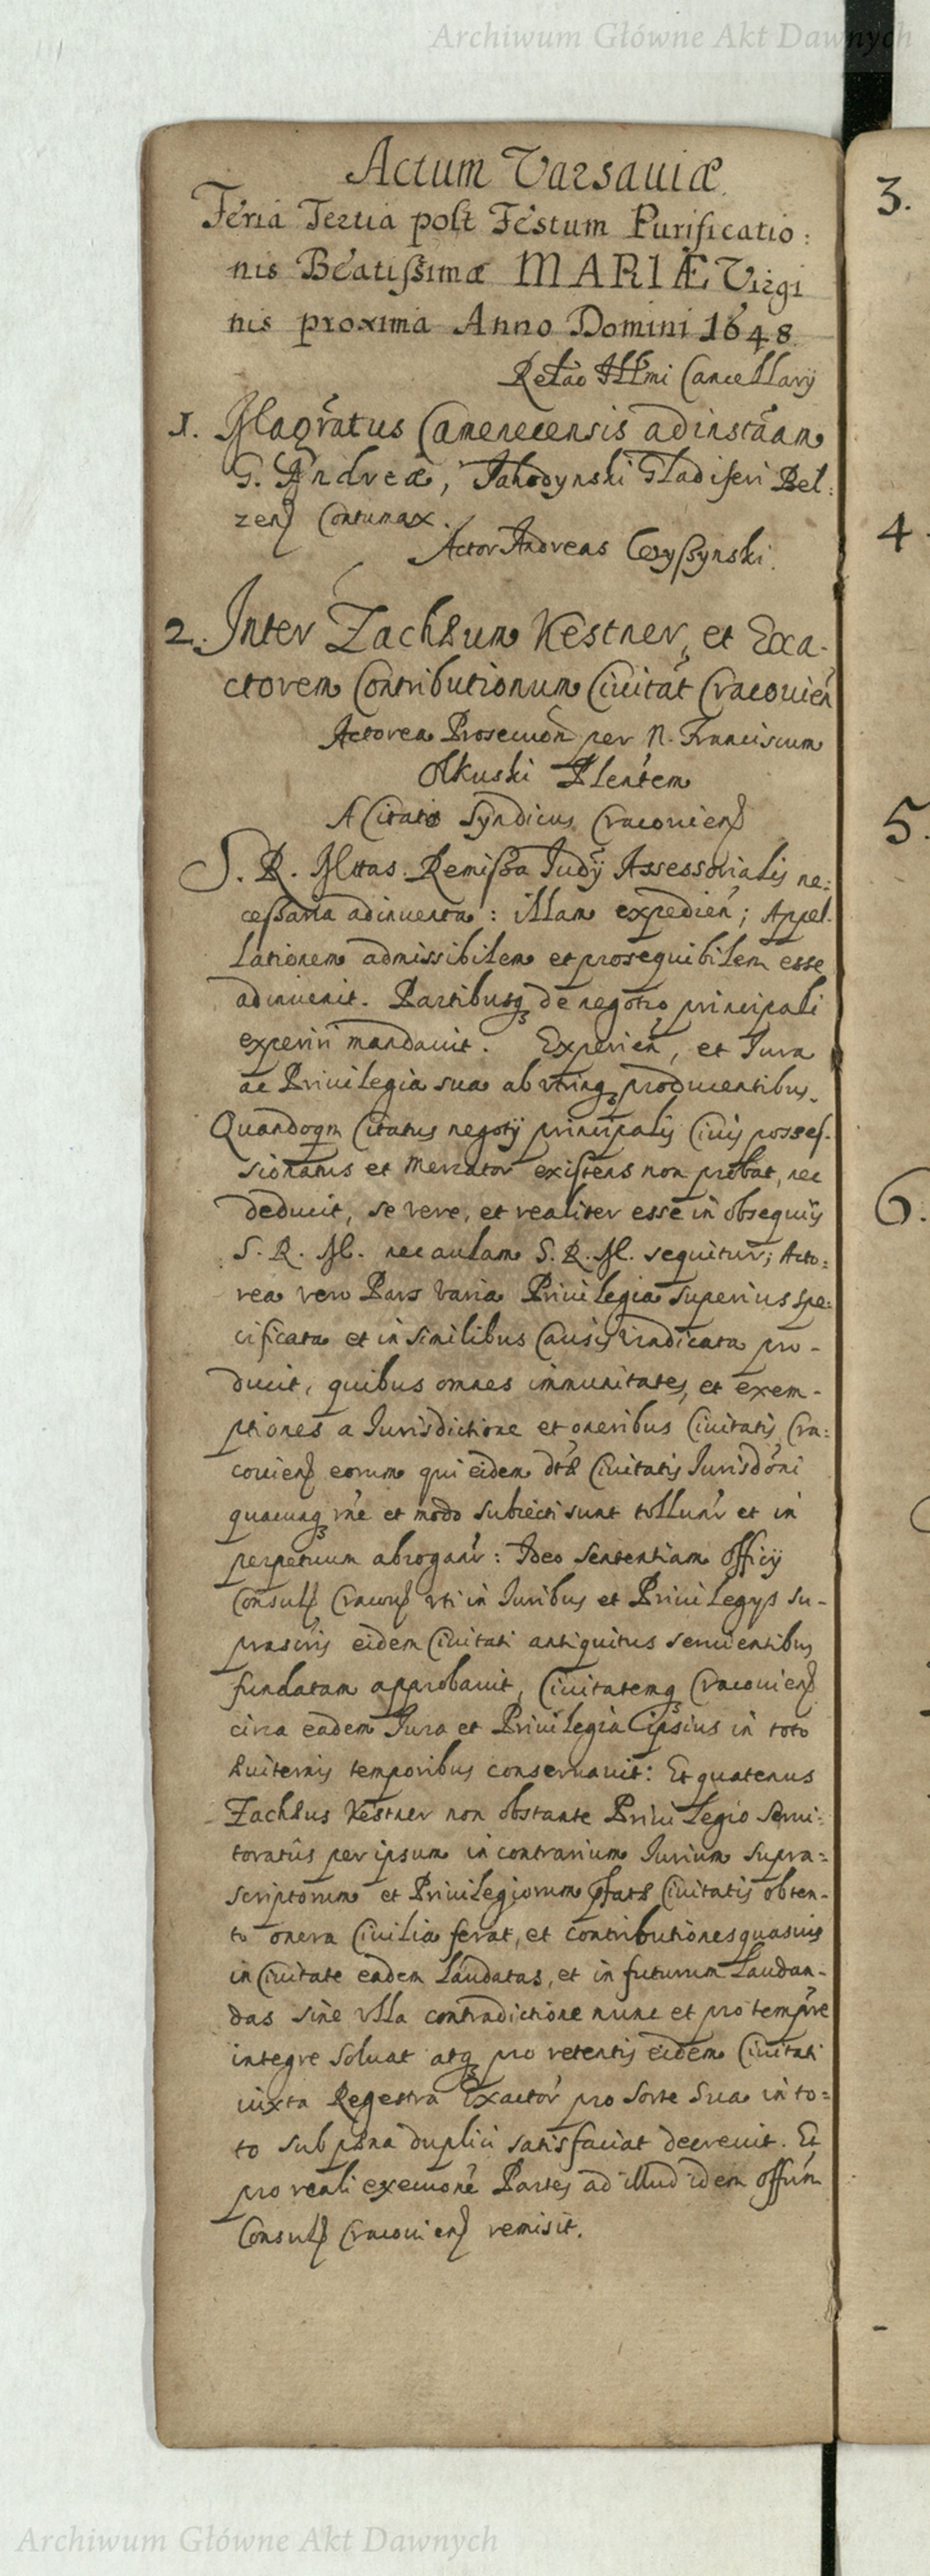 Archiwum Główne Akt Dawnych
Actum Varsauiæ
Feria Tertia post Festum Purificatio:
nis Beatissimæ MARIÆ Virgi
nis proxima Anno Domini 1648
Relao Illmi Cancellarij
1. Magratus Camenecensis ad instãam
G. Andreæ, Jahodynski Gladiferi Bel:
zen Contumax.
Actor Andreas
2. Inter Zachæum Kestner, et Exa-
ctorem Contributionum Ciuitat Cracouien
Actorea Prosecuõn per N. Franciscum
Olkuski Plentem
A Citato Syndicus Cracouien
S. R. Mttas. Remissa Judÿ Assessorialis ne:
cessaria adinuenta: illam expedien; Appel.
lationem admissibilem et prosequibilem esse
adinuenit. Partibusq de negotio principali
experiri mandauit. Experien, et Jura
ac Priuilegia sua ab vtrinq producentibus.
Quandoqm Citatus negotij principalis Ciuis posses-
sionatus et Mercator existens non probat, nec
deducit, se vere, et realiter esse in obsequijs
S. R. M. nec aulam S. R. M. sequitur; Acto:
rea vero Pars varia Priuilegia superius spe:
cificata et in similibus Causis vindicata pro-
ducit, quibus omnes immunitates, et exem-
ptiones a Jurisdictione et oneribus Ciuitatis Cra:
couien eorum qui eidem dtæ Ciuitatis Jurisdõni
quacunq rne et modo subiecti sunt tollunr et in
perpetuum abroganr: Ideo sententiam officij
Consul Cracou vti in Juribus et Priuilegys su-
prascris eidem Ciuitati antiquitus seruientibus
fundatam approbauit, Ciuitatemq Cracouien
circa eadem Jura et Priuilegia ipsius in toto
æuiternis temporibus conseruauit: Et quatenus
Zachæus Kestner non obstante Priuilegio serui:
toratûs per ipsum in contrarium Jurium supra=
scriptorum et Priuilegiorum pfatæ Ciuitatis obten-
to onera Ciuilia ferat, et contributiones quasuis
in Ciuitate eadem laudatas, et in futurum laudan-
das sine vlla contradictione nunc et pro tempre
integre soluat atq pro retentis eidem Ciuitati
iuxta Regestra Exactor pro sorte sua in to=
to sub pæna duplici satisfaciat decreuit. Et
pro reali execuone Partes ad illud idem offum
Consul Cracouien remisit.
3.
4.
5.
6.
Archiwum Główne Akt Dawnych